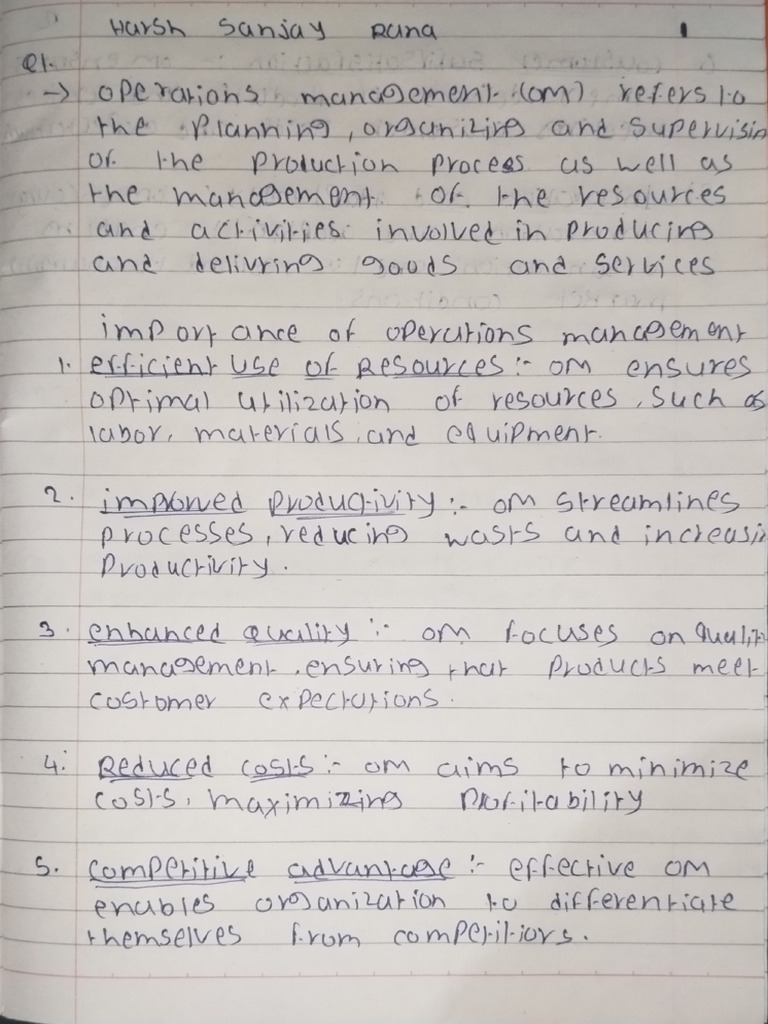 Harsh Sanjay Rana 1
Q1.
→ operations management (om) refers to
the planning, organizing and supervisin
of the production process as well as
the management of the resources
and activities involved in producing
and delivring goods and services
importance of operations management
1. efficient use of Resources :- om ensures
optimal utilization of resources, such as
labor, materials, and equipment.
2. improved productivity :- om streamlines
processes, reducing wasts and increasi
productivity.
3. enhanced quality :- om focuses on qualit
management, ensuring that products meet
customer expectations.
4. Reduced costs :- om aims to minimize
costs, maximizing profitability
5. competitive advantage :- effective om
enables organization to differentiate
themselves from competitiors.